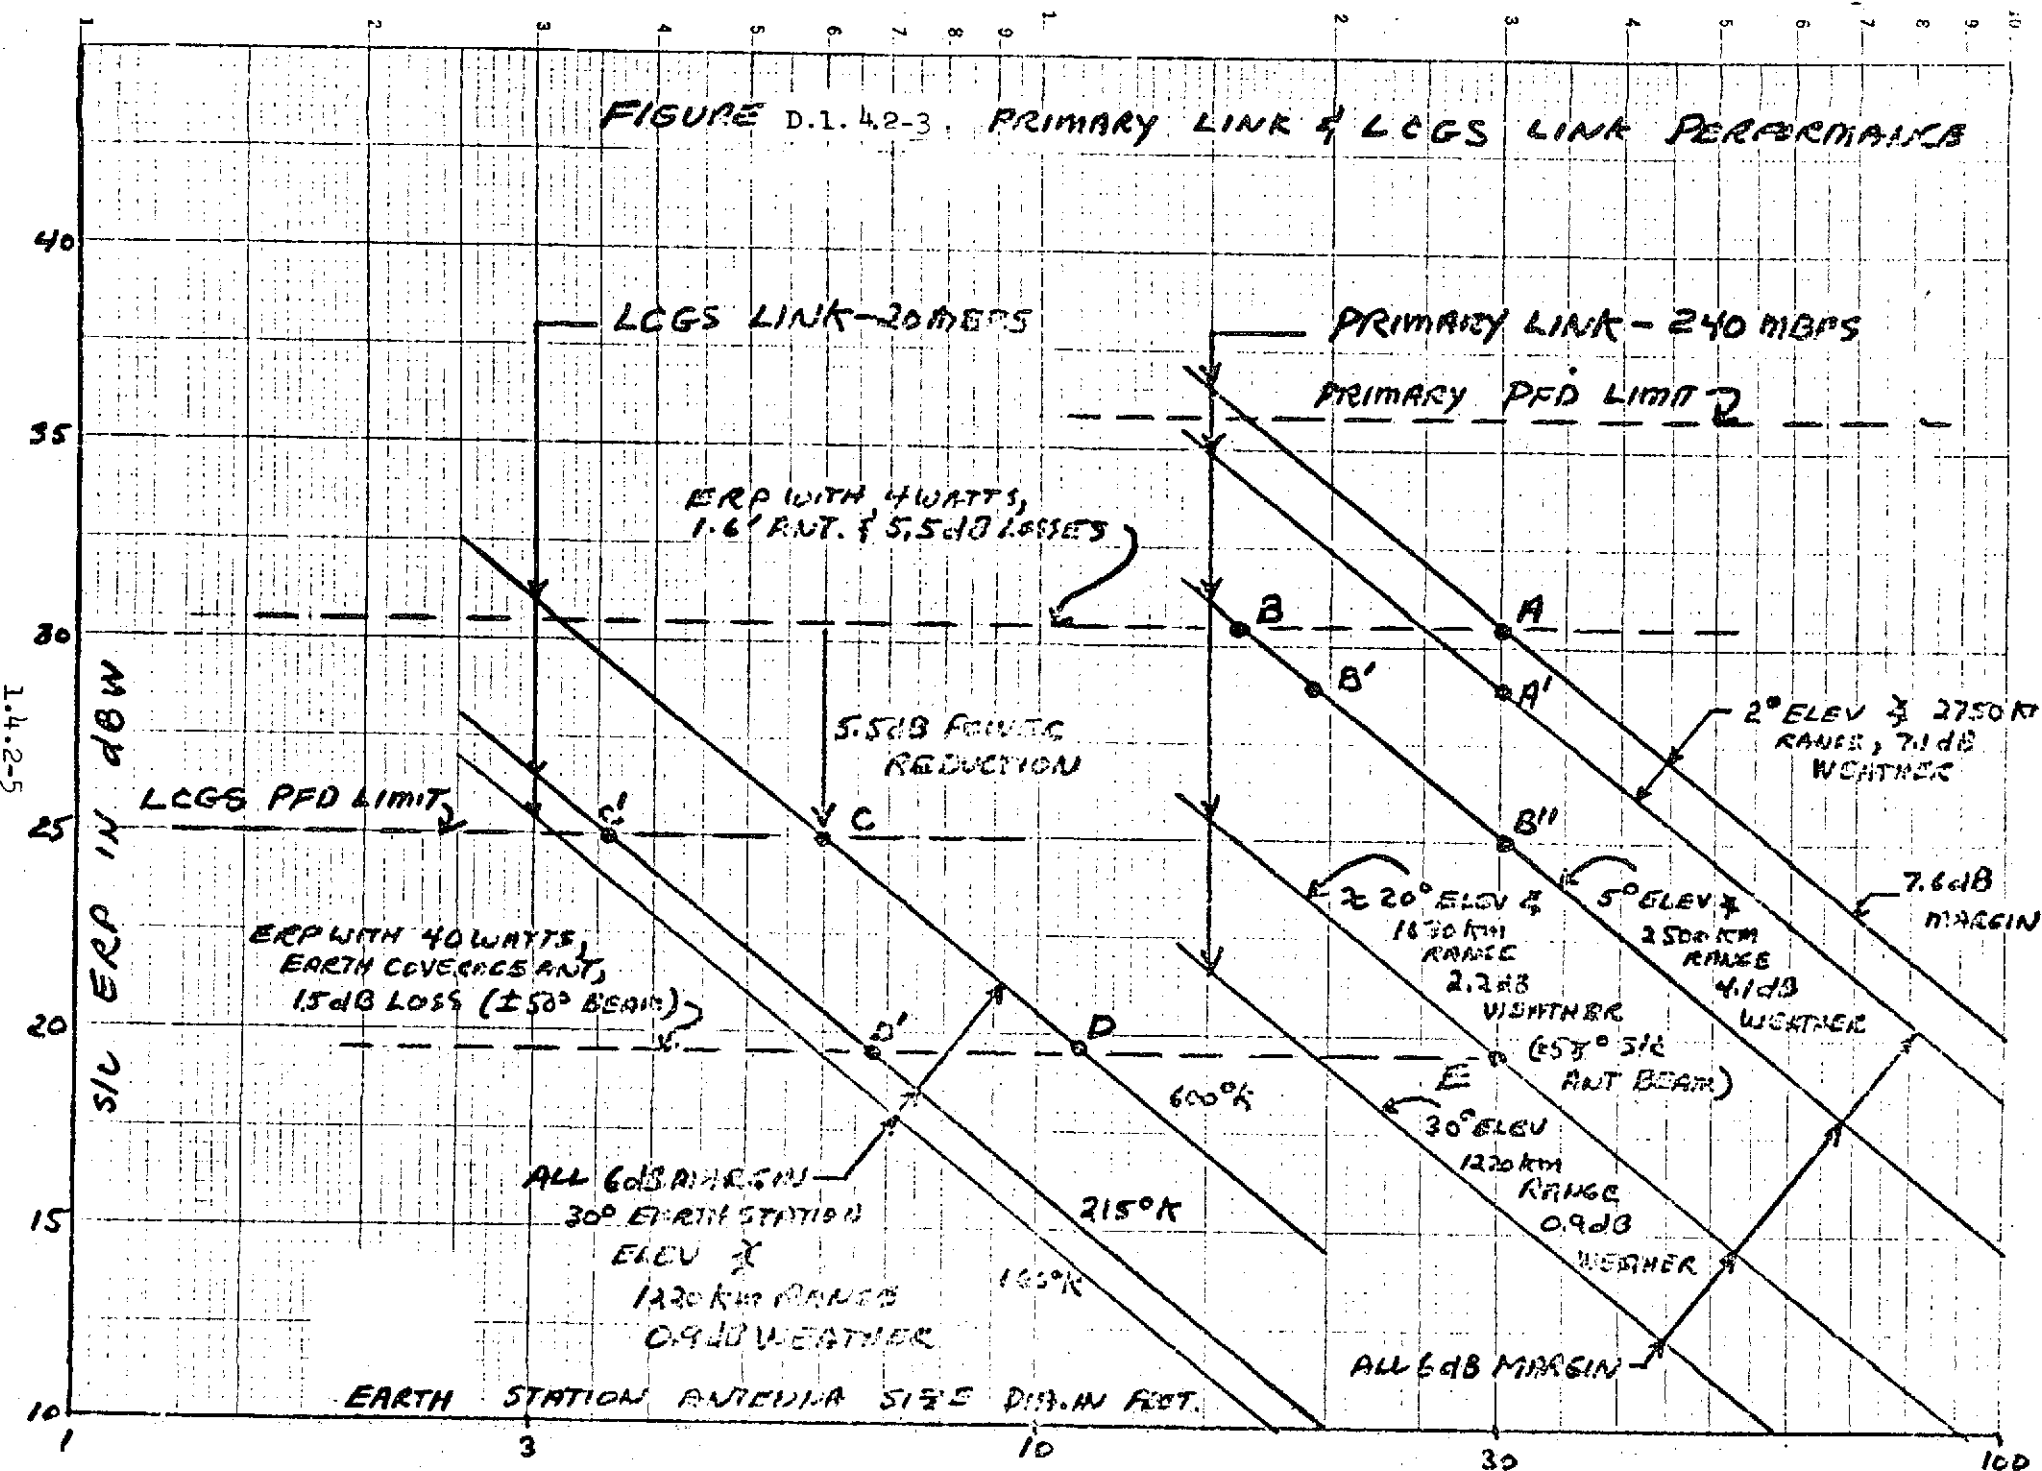 1 2 3 4 5 6 7 8 9 1 2 3 4 5 6 7 8 9 10
FIGURE D.1.4.2-3. PRIMARY LINK & LCGS LINK PERFORMANCE
40
35
30
25
20
15
10
S/C ERP IN dBW
1.4.2-5
LCGS LINK-20MBPS
PRIMARY LINK - 240 MBPS
PRIMARY PFD LIMIT
ERP WITH 4 WATTS,
1.6' ANT. & 5.5dB LOSSES
B
A
B'
A'
5.5dB POWER
REDUCTION
2° ELEV & 2750 KM
RANGE, 7.1 dB
WEATHER
LCGS PFD LIMIT
C'
C
B"
7.6dB
MARGIN
≈ 20° ELEV &
RANGE
2.2dB
WEATHER
(±55° S/C
ANT BEAM)
5° ELEV &
2500 KM
RANGE
4.1dB
WEATHER
ERP WITH 40 WATTS,
EARTH COVERAGE ANT,
1.5dB LOSS (±50° BEAM)
D'
D
E
600°K
30° ELEV
1220 km
RANGE
0.9dB
WEATHER
ALL 6dB MARGIN
30° EARTH STATION
ELEV &
1220 km RANGE
0.9dB WEATHER
215°K
ALL 6dB MARGIN
EARTH STATION ANTENNA SIZE DIA. IN FEET.
1 3 10 30 100